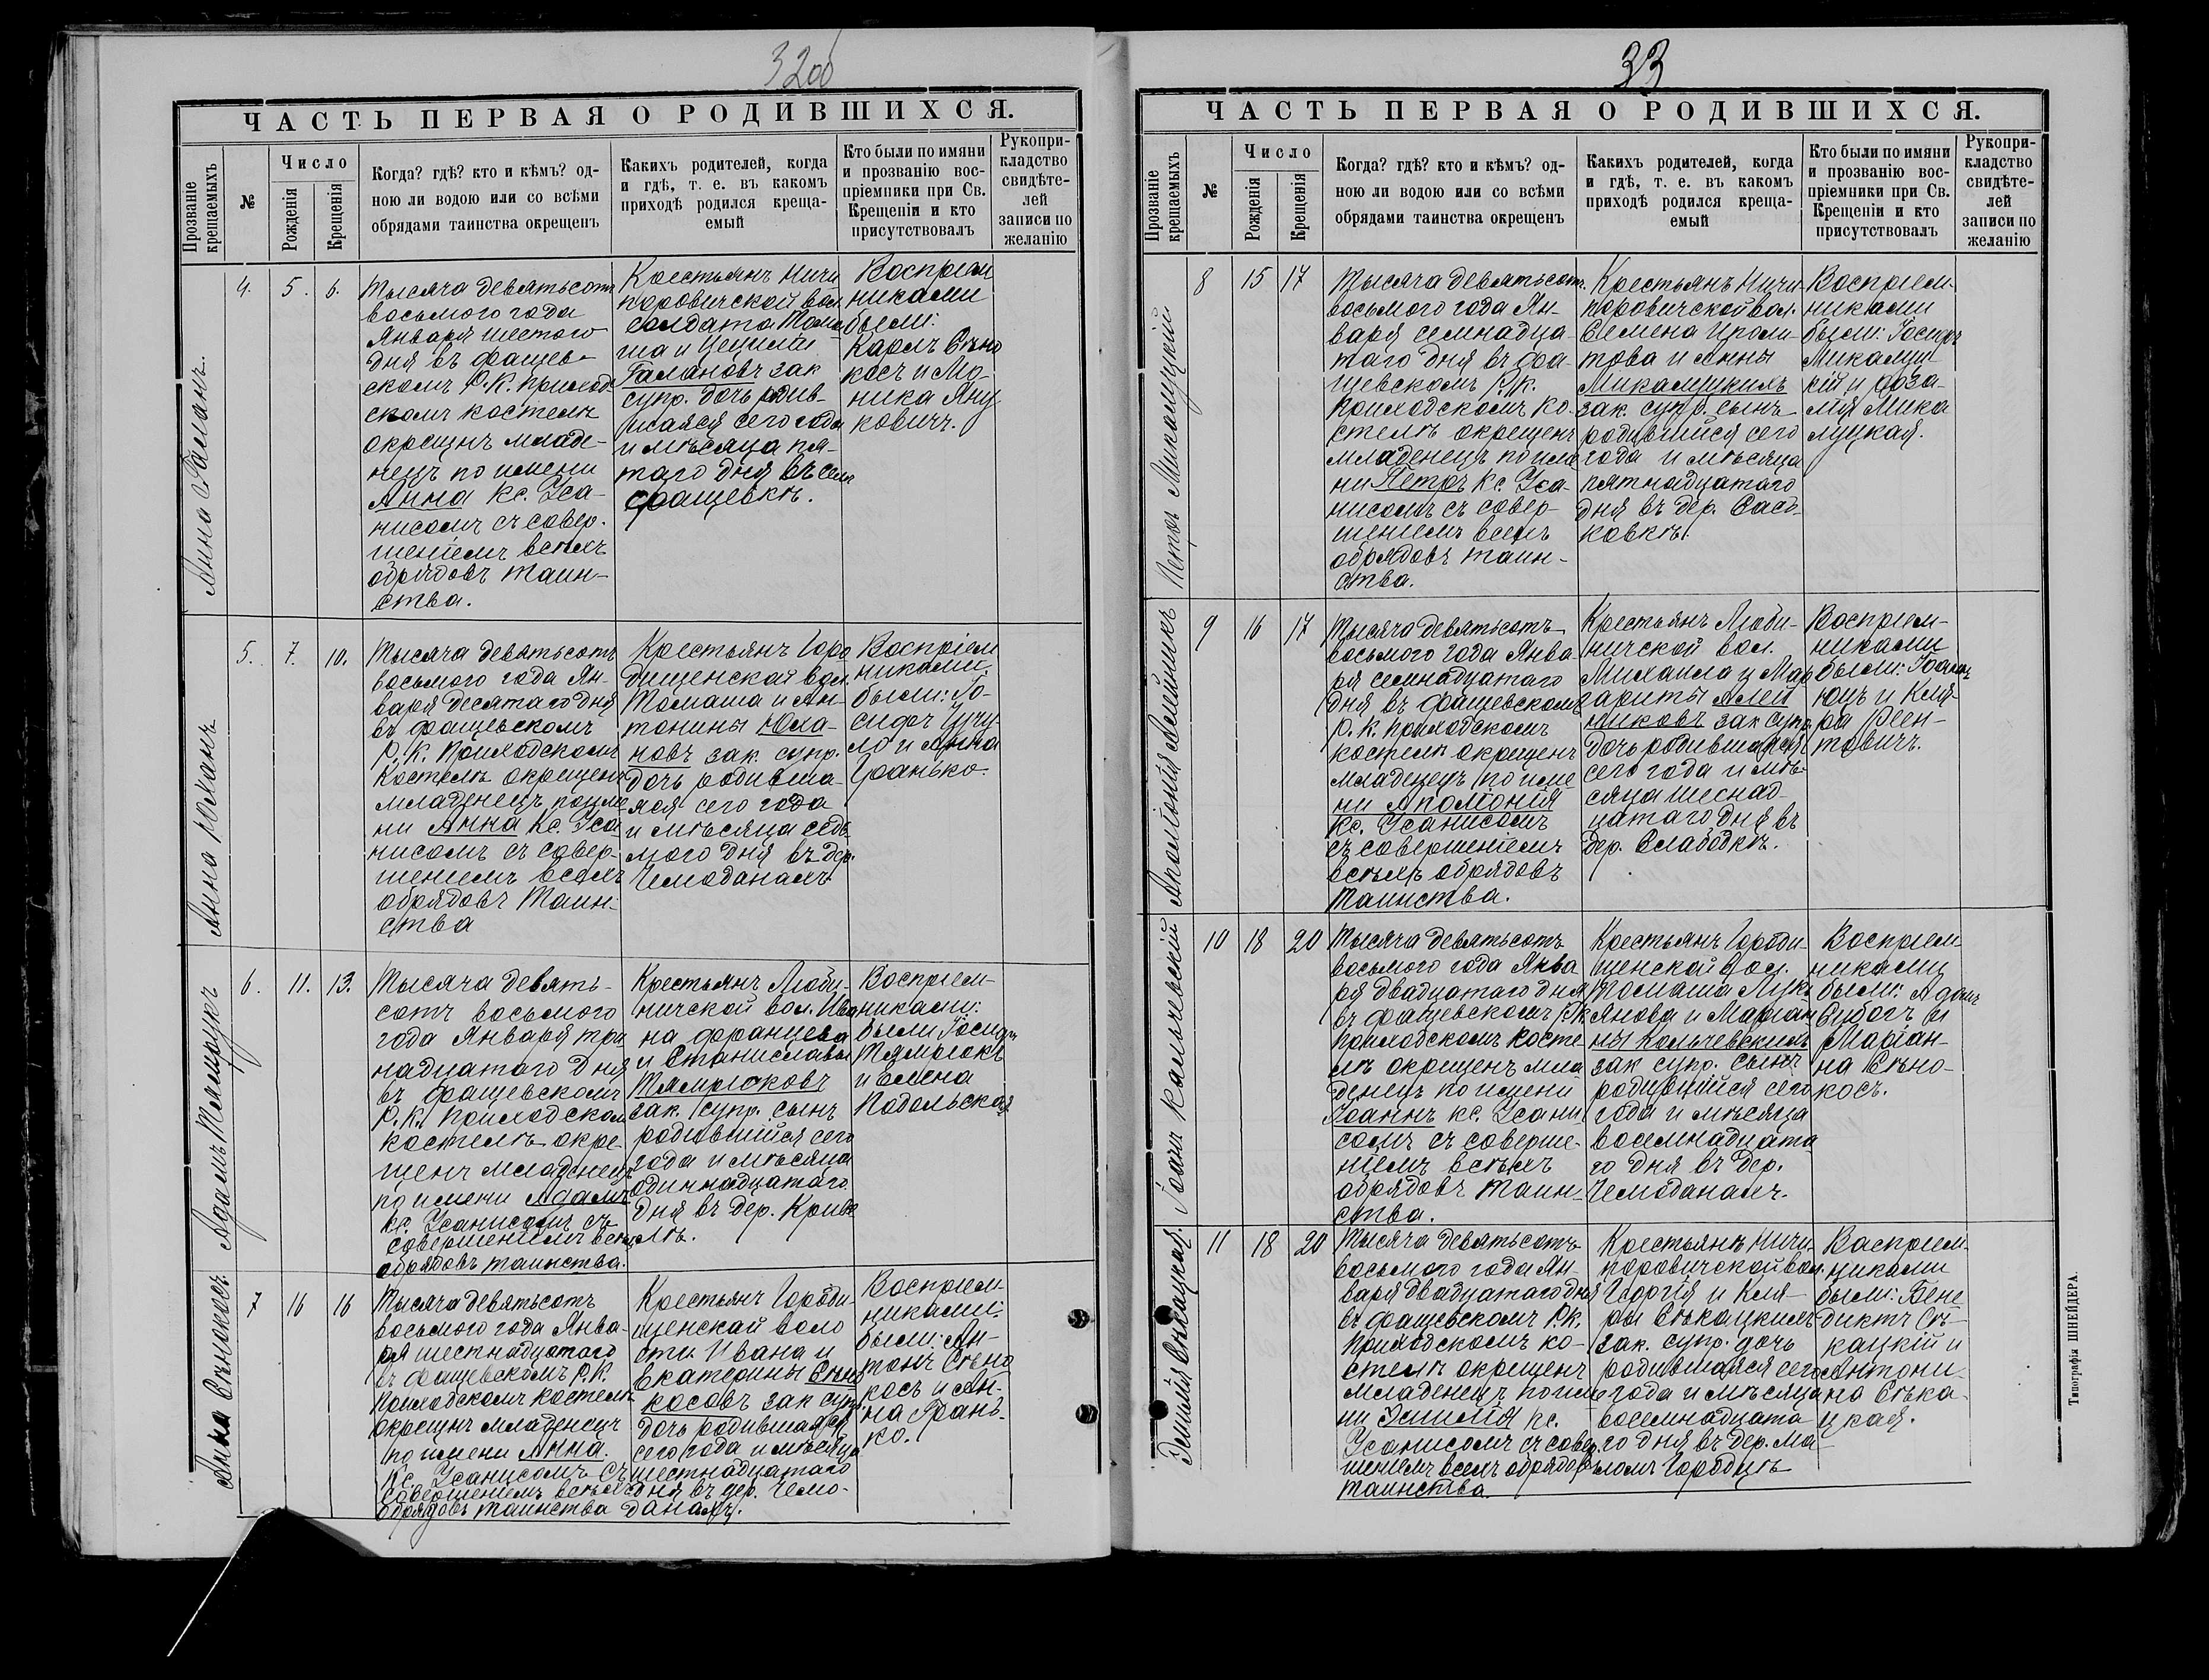 32об
ЧАСТЬ ПЕРВАЯ О РОДИВШИХСЯ.
Прозваніе крещаемыхъ
№
Число
Рожденія
Крещенія
Когда? гдѣ? кто и кѣмъ? од-
ною ли водою или со всѣми
обрядами таинства окрещенъ
Какихъ родителей, когда
и гдѣ, т. е. въ какомъ
приходѣ родился креща-
емый
Кто были по имяни
и прозванію вос-
пріемники при Св.
Крещеніи и кто
присутствовалъ
Рукопри-
кладство
свидѣте-
лей
записи по
желанію
Анна Галанъ.
4. 5. 6.
Тысяча девятьсотъ
восьмого года
Января шестого
дня въ Фащев-
скомъ Р.К. приход-
скомъ костелѣ
окрещенъ младе-
нецъ по имени
Анна кс. Уса-
нисомъ съ совер-
шеніемъ всѣхъ
обрядовъ таин-
ства.
Крестьянъ Ничи
поровичской вол.
солдата Тома-
ша и Цециліи
Галановъ зак
супр. дочь родив-
шаяся сего года
и мѣсяца пя-
таго дня въ селѣ
Фащевкѣ.
Воспріем
никами
были:
Карлъ Сѣно
косъ и Мо-
ника Яну
ковичъ.
Анна Юманъ
5. 7. 10.
Тысяча девятьсотъ
восьмого года Ян-
варя десятаго дня
въ Фащевскомъ
Р.К. Приходскомъ
Костелѣ окрещенъ
младенецъ по име
ни Анна кс. Уса
нисомъ съ совер-
шеніемъ всѣхъ
обрядовъ Таин-
ства
Крестьянъ Горо
дищенской вол.
Томаша и Ан-
тонины Юма-
новъ зак. супр.
дочь родивша-
яся сего года
и мѣсяца седь
мого дня въ дер.
Чемоданахъ
Воспріем
никами
были: Іо-
сифъ Цучу
ло и Анна
Гранько.
Адамъ Тямрукъ
6. 11. 13.
Тысяча девять-
сотъ восьмого
года Января три
надцатаго дня
въ Фащевскомъ
Р.К. Приходскомъ
костелѣ окре-
щенъ младенецъ
по имени Адамъ
кс. Усанисомъ съ
совершеніемъ всѣхъ
обрядовъ таинства.
Крестьянъ Люби-
ничской вол. Ива
на Францева
и Станиславы
Тямрюковъ
зак. супр. сынъ
родившійся сего
года и мѣсяца
одиннадцатаго
дня въ дер. Криве
лѣ.
Воспріем-
никами:
были Іосифъ
Тямрюкъ
и Елена
Подольская
Анна Сѣнокосъ
7 16 16
Тысяча девятьсотъ
восьмого года Янва-
ря шестнадцатаго
въ Фащевскомъ Р.К.
Приходскомъ костелѣ
окрещенъ младенецъ
по имени Анна.
кс. Усанисомъ съ
совершеніемъ всѣхъ
обрядовъ таинства
Крестьянъ Городи-
щенской воло
сти Ивана и
Екатерины Сѣно
косовъ зак супр.
дочь родившаяся
сего года и мѣсяца
шестнадцатаго
дня въ дер. Чемо-
данахъ.
Воспріем-
никами:
были: Ан-
тонъ Сѣно
косъ и Ан-
на Грань-
ко.
33
ЧАСТЬ ПЕРВАЯ О РОДИВШИХСЯ.
Прозваніе крещаемыхъ
№
Число
Рожденія
Крещенія
Когда? гдѣ? кто и кѣмъ? од-
ною ли водою или со всѣми
обрядами таинства окрещенъ
Какихъ родителей, когда
и гдѣ, т. е. въ какомъ
приходѣ родился креща-
емый
Кто были по имяни
и прозванію вос-
пріемники при Св.
Крещеніи и кто
присутствовалъ
Рукопри-
кладство
свидѣте-
лей
записи по
желанію
Петръ Микалуцкій
8 15 17
Тысяча девятьсотъ
восьмого года Ян-
варя семнадца-
таго дня въ Фа-
щевскомъ Р.К.
Приходскомъ Ко-
стелѣ окрещенъ
младенецъ по име
ни Петръ кс. Уса-
нисомъ съ совер-
шеніемъ всѣхъ
обрядовъ таин-
ства.
Крестьянъ Ничи
поровичской вол.
Семена Ипполи-
това и Анны
Микалуцкихъ
зак. супр. сынъ
родившійся сего
года и мѣсяца
пятнадцатаго
дня въ дер. Вась-
ковкѣ.
Воспріем-
никами
были: Іосифъ
Микалуц
кій и Роза-
лія Мика
луцкая.
Аполонія Алейникъ
9 16 17
Тысяча девятьсотъ
восьмого года Янва
ря семнадцатаго
дня въ Фащевскомъ
Р.К. Приходскомъ
костелѣ окрещенъ
младенецъ по име
ни Аполонія
кс. Усанисомъ
съ совершеніемъ
всѣхъ обрядовъ
таинства.
Крестьянъ Люби-
ничской вол.
Михаила и Мар
гариты Алей
никовъ зак супр.
дочь родившаяся
сего года и мѣ-
сяца шеснад-
цатаго дня въ
дер. Слободкѣ.
Воспріем-
никами
были: Іоаннъ
Юцъ и Кля-
ра Реен-
товичъ.
Іоаннъ Кальчевскій
10 18 20
Тысяча девятьсотъ
восьмого года Янва
ря двадцатаго дня
въ Фащевскомъ Р.К.
приходскомъ косте
лѣ окрещенъ мла
денецъ по имени
Іоаннъ кс. Усани
сомъ съ соверше-
ніемъ всѣхъ
обрядовъ таин-
ства.
Крестьянъ Городи-
щенской вол.
Томаша Луки
янова и Маріан
ны Кольчевскихъ
зак супр. сынъ
родившійся сего
года и мѣсяца
восемнадцата
го дня въ дер.
Чемоданахъ.
Воспріем
никами
были: Адамъ
Судогъ и
Маріан-
на Сѣно-
косъ.
Эмилія Сѣкацкая.
11 18 20
Тысяча девятьсотъ
восьмого года Ян-
варя двадцатаго дня
въ Фащевскомъ Р.К.
Приходскомъ ко-
стелѣ окрещенъ
младенецъ по име
ни Эмилія кс.
Усанисомъ съ совер-
шеніемъ всѣхъ обрядовъ
таинства.
Крестьянъ Ничи-
поровичской вол.
Георгія и Кля-
ры Сѣкацкихъ
зак. супр. дочь
родившаяся сего
года и мѣсяца
восемнадцата
го дня въ дер. Ма-
ломъ Городцѣ
Воспріем-
никами
были: Бене
диктъ Сѣ-
кацкій и
Антони-
на Сѣка-
цкая.
Типографія ШНЕЙДЕРА.